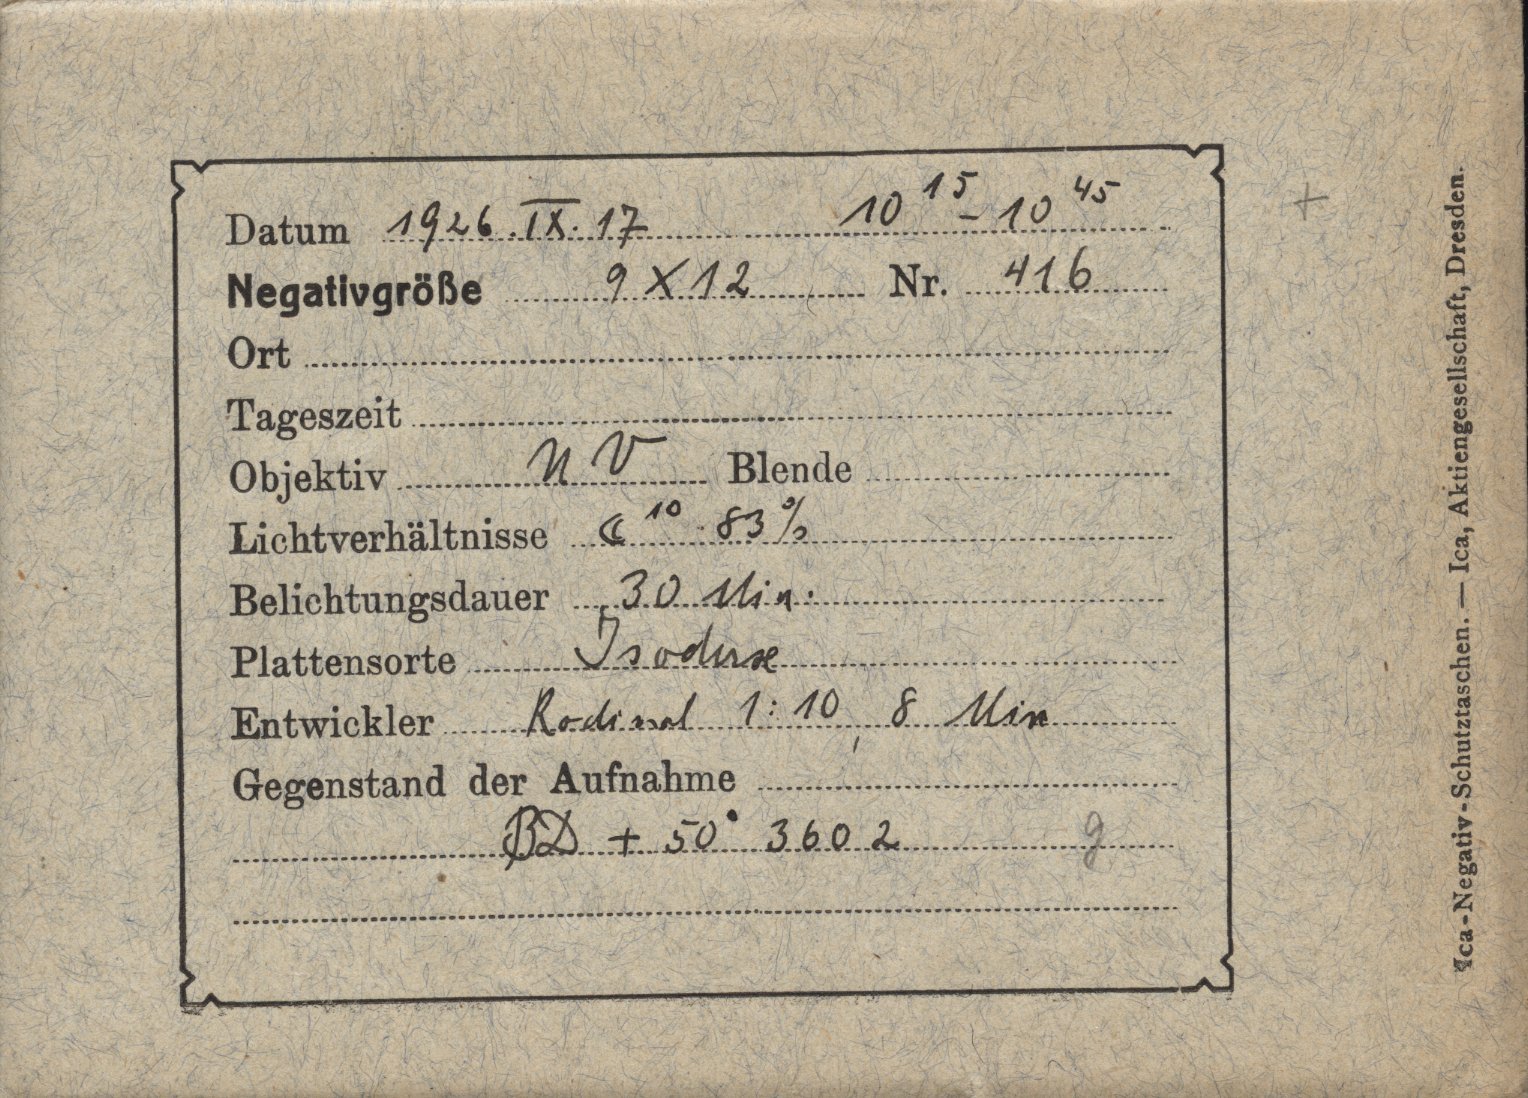 Datum 1926.IX.17 10 15 - 10 45
Negativgröße 9 X 12 Nr. 416
Ort
Tageszeit
Objektiv N V Blende
Lichtverhältnisse ☾ 10 83%
Belichtungsdauer 30 Min.
Plattensorte Isodux
Entwickler Rodinal 1:10, 8 Min
Gegenstand der Aufnahme
BD + 50° 3602 g
+
Ica-Negativ-Schutztaschen. — Ica, Aktiengesellschaft, Dresden.